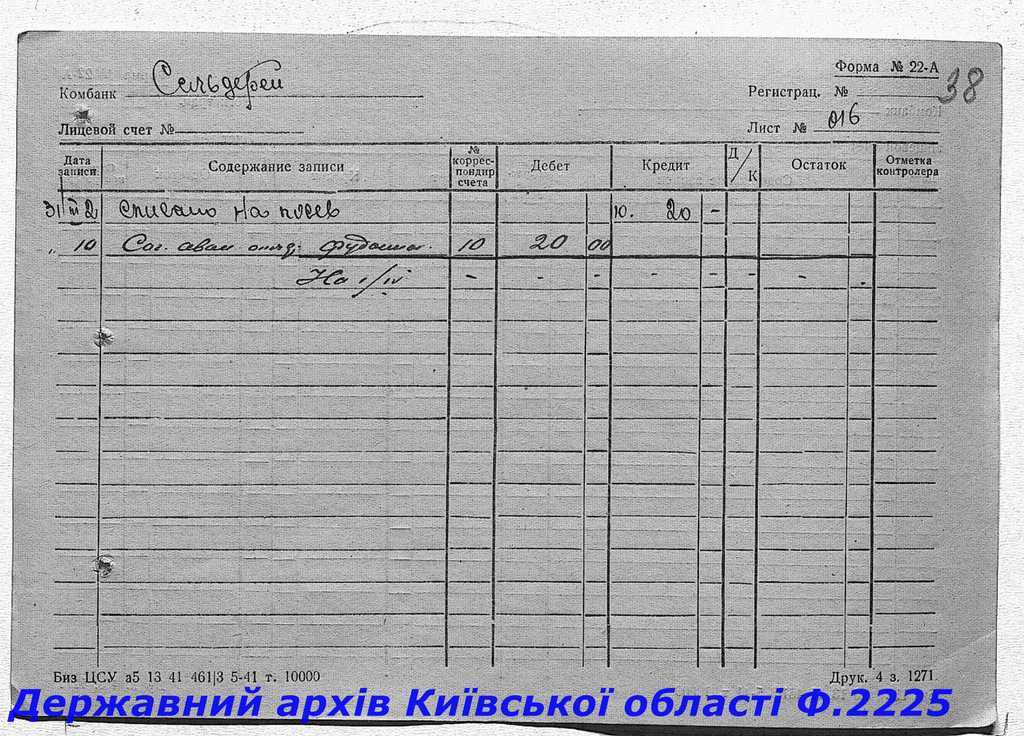 Форма № 22-А
38
Комбанк Сельдерей
Регистрац. №
Лицевой счет №
Лист № 016
Дата записи Содержание записи № коррес-пондир счета Дебет Кредит Д/К Остаток Отметка контролера
31/III 2 списано на посев 10. 20 -
„ 10 аван 10 20 00
На 1/IV - - - - - - - .
Биз ЦСУ а5 13 41 461|3 5-41 т. 10000
Друк. 4 з. 1271.
Державний архів Київської області Ф.2225